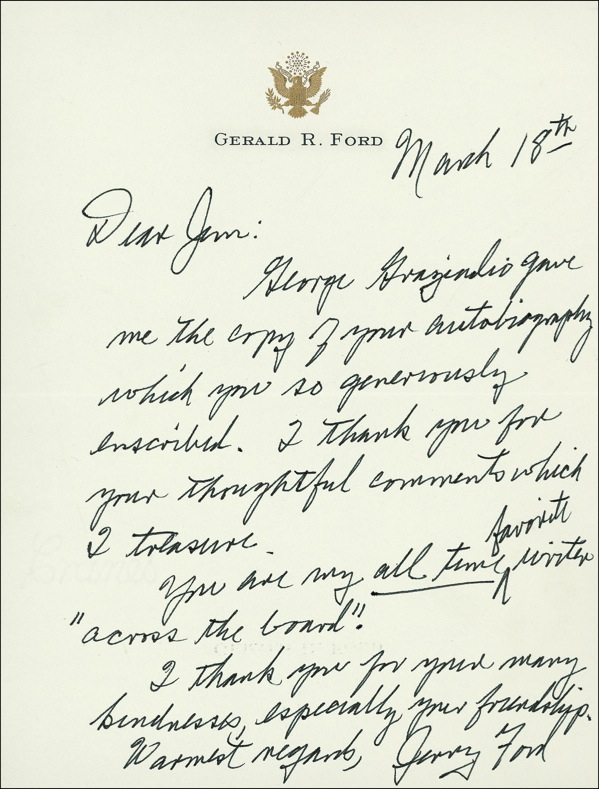 GERALD R. FORD
March 18th
Dear Jim:
George Graziadio gave
me the copy of your autobiography
which you so generously
enscribed. I thank you for
your thoughtful comments which
I treasure.
You are my all time favorite writer
"across the board".
I thank you for your many
kindnesses, especially your friendship.
Warmest regards, Jerry Ford